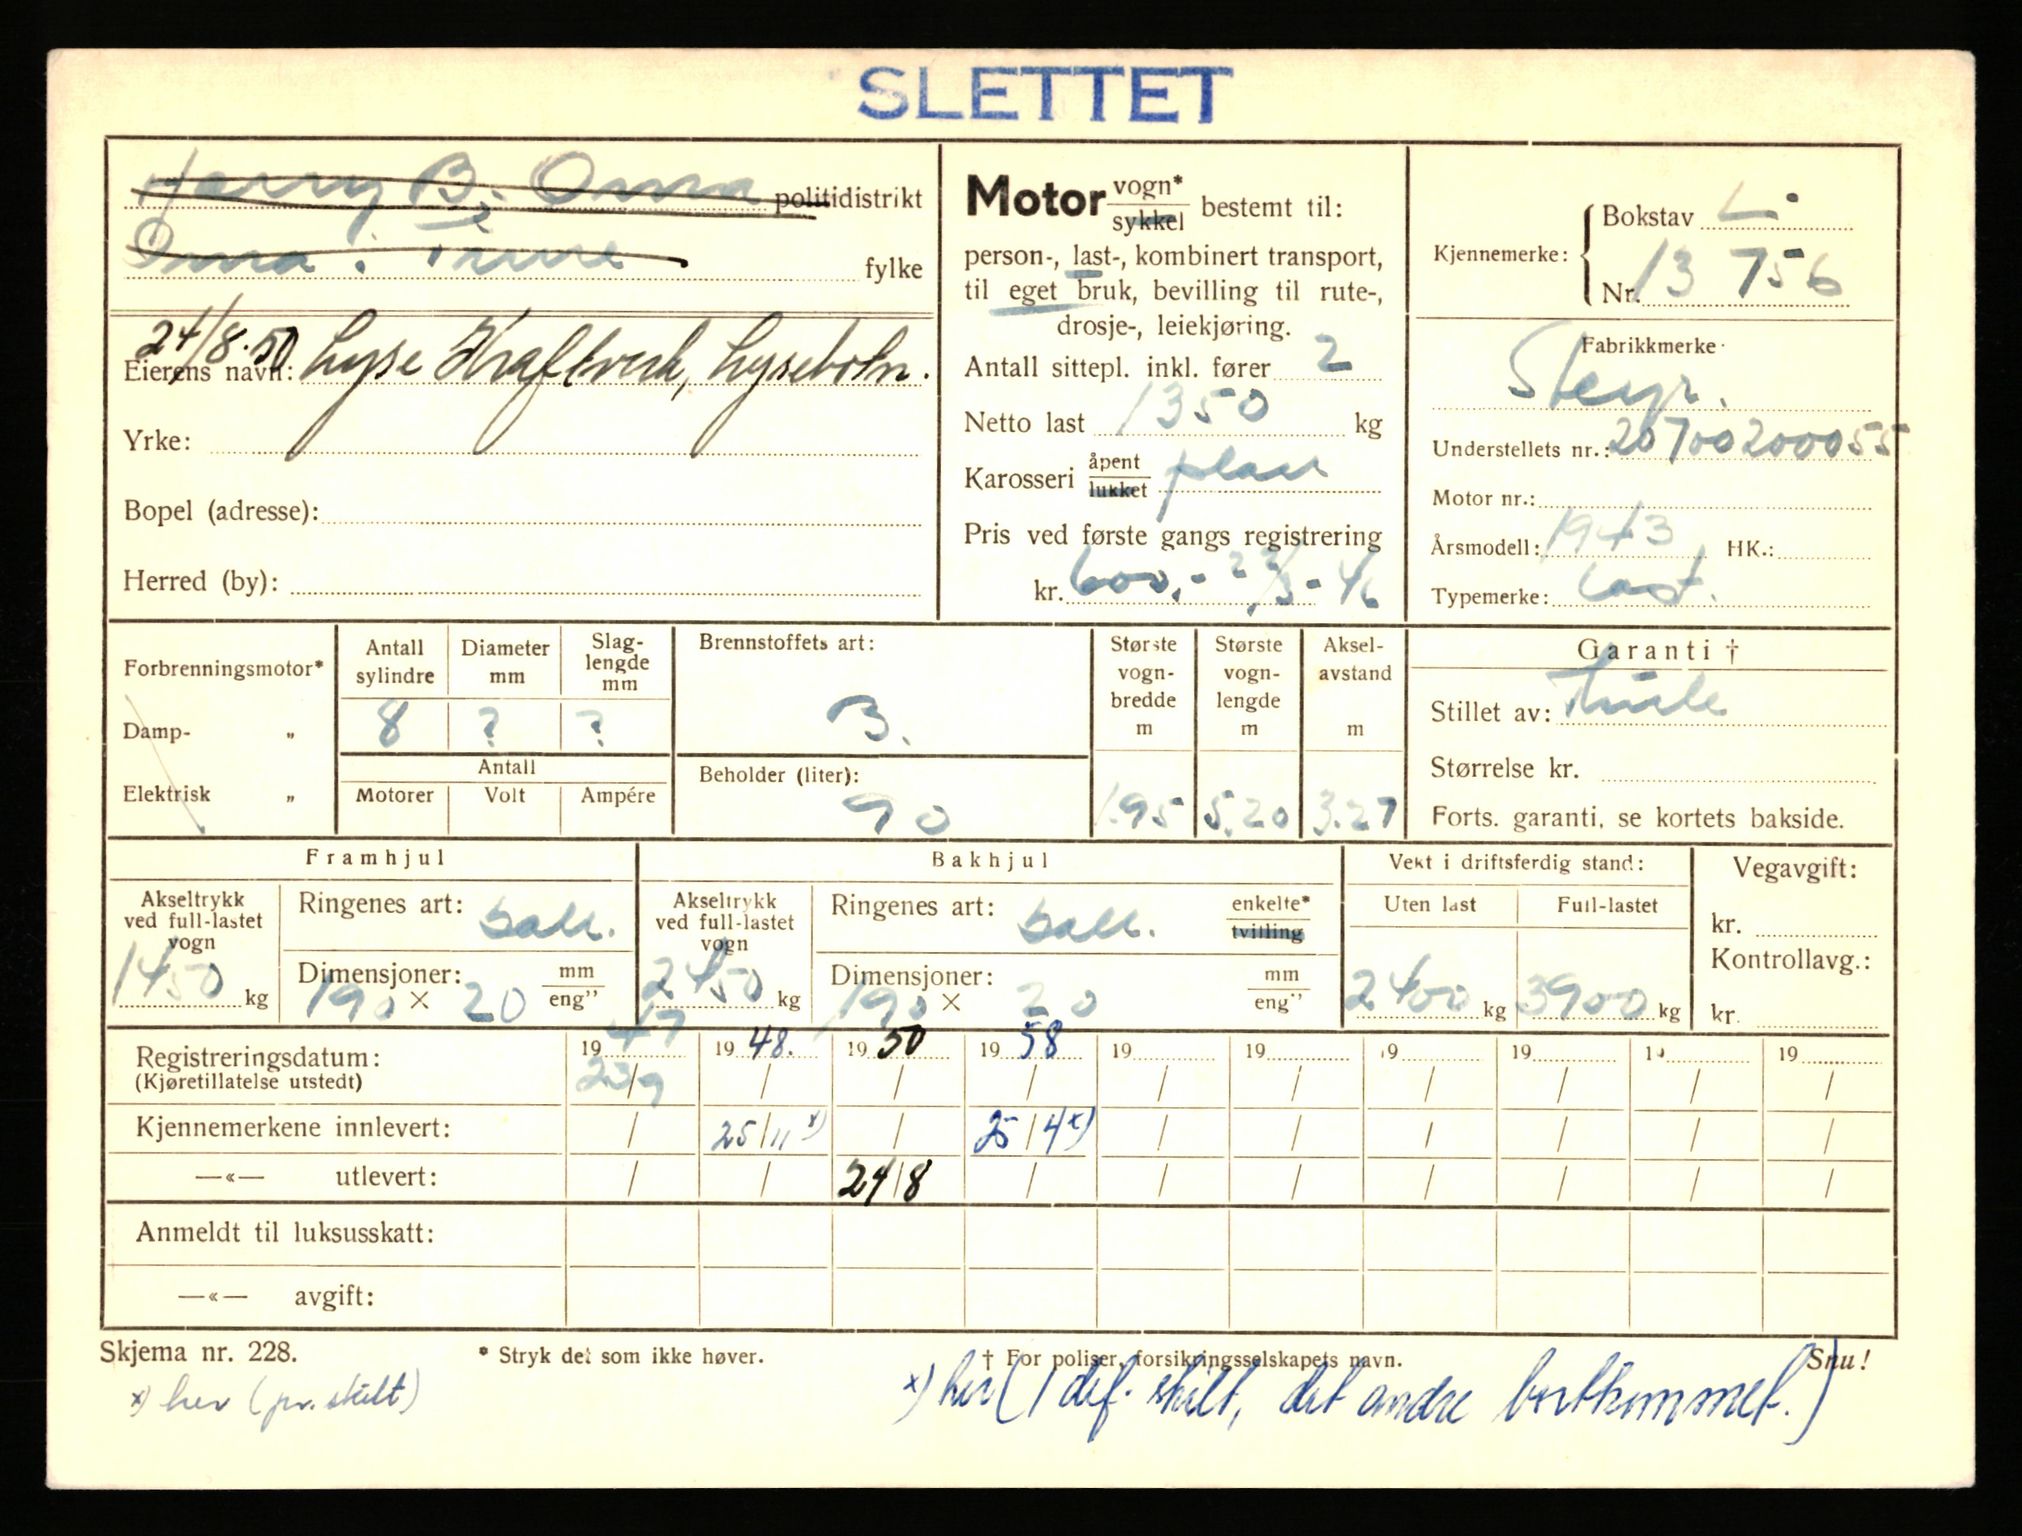 SLETTET
Harry B. Omra politidistrikt
fylke
24/8.50
Eierens navn: Lyse Kraftverk, Lysebotn.
Yrke:
Bopel (adresse):
Herred (by):
Motor vogn* sykkel bestemt til:
person-, last-, kombinert transport,
til eget bruk, bevilling til rute-,
drosje-, leiekjøring.
Antall sittepl. inkl. fører 2
Netto last 1350 kg
Karosseri åpent lukket plan
Pris ved første gangs registrering
kr. 600,- 22/3-46
Kjennemerke: Bokstav L.
Nr. 13756
Fabrikkmerke
Steyr.
Understellets nr.: 20700200055
Motor nr.:
Årsmodell: 1943 HK.:
Typemerke: Last.
Forbrenningsmotor*
Damp- „
Elektrisk „
Antall sylindre Diameter mm Slag-lengde mm
8 ? ?
Antall
Motorer Volt Ampére
Brennstoffets art:
B.
Beholder (liter):
90
Største vogn-bredde m Største vogn-lengde m Aksel-avstand m
1.95 5.20 3.27
Garanti †
Stillet av:
Størrelse kr.
Forts. garanti, se kortets bakside.
Framhjul
Akseltrykk ved full-lastet vogn
1450 kg
Ringenes art: ball.
Dimensjoner: mm eng"
190 × 20
Bakhjul
Akseltrykk ved full-lastet vogn
2450 kg
Ringenes art: ball. enkelte* tvilling
Dimensjoner: mm eng"
190 × 20
Vekt i driftsferdig stand:
Uten last Full-lastet
2400 kg 3900 kg
Vegavgift:
kr.
Kontrollavg.:
kr.
Registreringsdatum: 1947 1948. 1950 1958 19 19 19 19 19 19
(Kjøretillatelse utstedt) 23/9 / / / / / / / / /
Kjennemerkene innlevert: / 25/11 x) / 25/4 x) / / / / / /
—«— utlevert: / / 24/8 / / / / / / /
Anmeldt til luksusskatt:
—«— avgift:
Skjema nr. 228. * Stryk det som ikke høver. † For poliser, forsikringsselskapets navn. Snu!
x) her (pr. skilt) x) her (1 def. skilt, det andre bortkommet.)